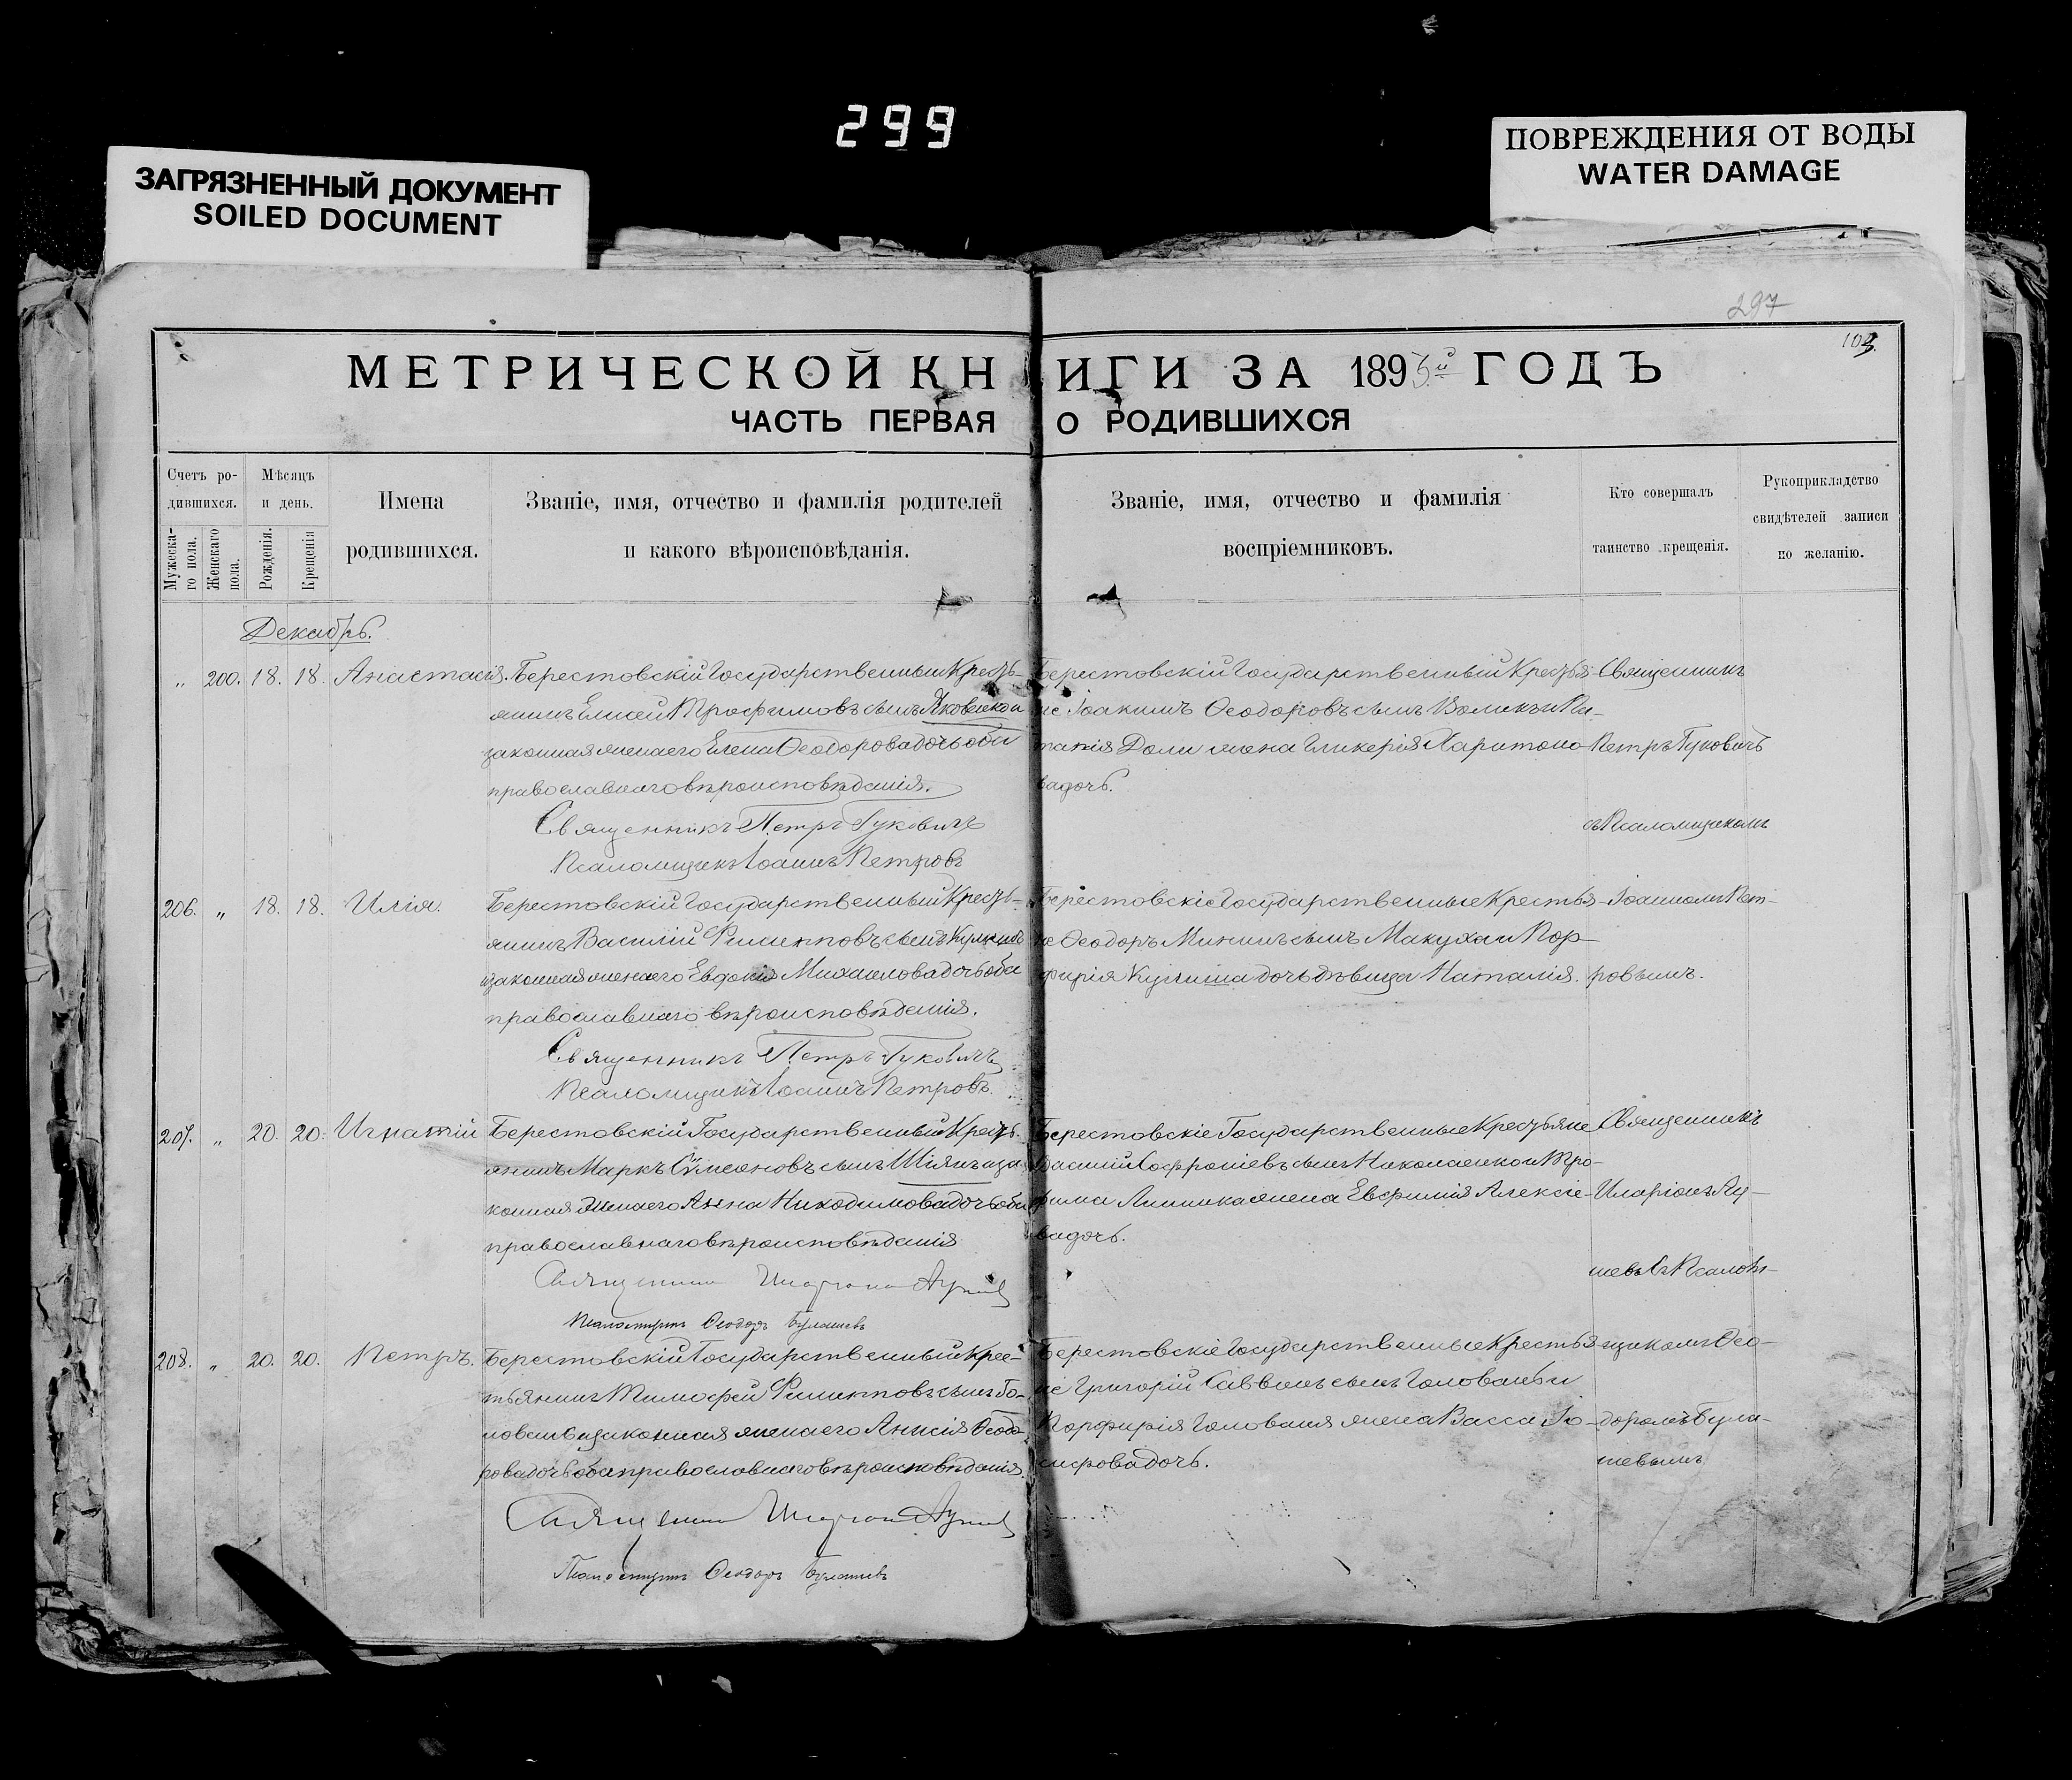 299
ЗАГРЯЗНЕННЫЙ ДОКУМЕНТ
SOILED DOCUMENT
ПОВРЕЖДЕНИЯ ОТ ВОДЫ
WATER DAMAGE
297
103.
МЕТРИЧЕСКОЙ КНИГИ ЗА 1893й ГОДЪ
ЧАСТЬ ПЕРВАЯ О РОДИВШИХСЯ
Счетъ ро-
дившихся.
Мужеска-
го пола.
Женскаго
пола.
Мѣсяцъ
и день.
Рожденія.
Крещенія
Имена
родившихся.
Званіе, имя, отчество и фамилія родителей
и какого вѣроисповѣданія.
Званіе, имя, отчество и фамилія
воспріемниковъ.
Кто совершалъ
таинство крещенія.
Рукоприкладство
свидѣтелей записи
по желанію.
Декабрь.
„ 200. 18. 18. Анастасія.
Берестовскій Государственный Кресть-
янинъ Елисей Трофимовъ сынъ Яковенко и
законная жена его Елена Ѳеодорова дочь оба
православнаго вѣроисповѣданія.
Священникъ Петръ Гуковичъ
Псаломщикъ Іоаннъ Петровъ
Берестовскій Государственный Крестья-
не Іоакимъ Ѳеодоровъ сынъ
жена Гликерія Харитоно-
ва дочь.
Священникъ
Петръ Гуковичъ
съ Псаломщикомъ
206. „ 18. 18. Илія.
Берестовскій Государственный Кресть-
янинъ Василій Филипповъ сынъ
законная жена его Евдокія Михаилова дочь оба
православнаго вѣроисповѣданія.
Священникъ Петръ Гуковичъ
Псаломщикъ Іоаннъ Петровъ.
Берестовскіе Государственные Крестья-
не Ѳеодоръ Мининъ сынъ Макуха и Пор-
фирія Кулиша дочь дѣвица Наталія.
Іоанномъ Пет-
ровымъ.
207. „ 20. 20. Игнатій
Берестовскій Государственный Кресть-
янинъ Маркъ Сѵмеоновъ сынъ Шіянъ и за-
конная Жена его Анна Никодимова дочь оба
православнаго вѣроисповѣданія
Священникъ Иларіонъ
Псаломщикъ Ѳеодоръ Булашевъ
Берестовскіе Государственные Крестьяне
Василій Софроніевъ сынъ Николаенко и Тро-
фима Линника жена Евфимія Алексіе-
ва дочь.
Священникъ
Иларіонъ
съ Псалом-
208. „ 20. 20. Петръ.
Берестовскій Государственный Крес-
тьянинъ Тимофей Филипповъ сынъ Го-
ловань и законная жена его Анисія Ѳеодо-
рова дочь оба православнаго вѣроисповѣданія.
Священникъ Иларіонъ
Псаломщикъ Ѳеодоръ Булашевъ
Берестовскіе Государственные Крестья-
не Григорій Саввинъ сынъ Головань и
Порфирія Голованя жена Васса Іо-
сифова дочь.
щикомъ Ѳео-
доромъ Була-
шевымъ